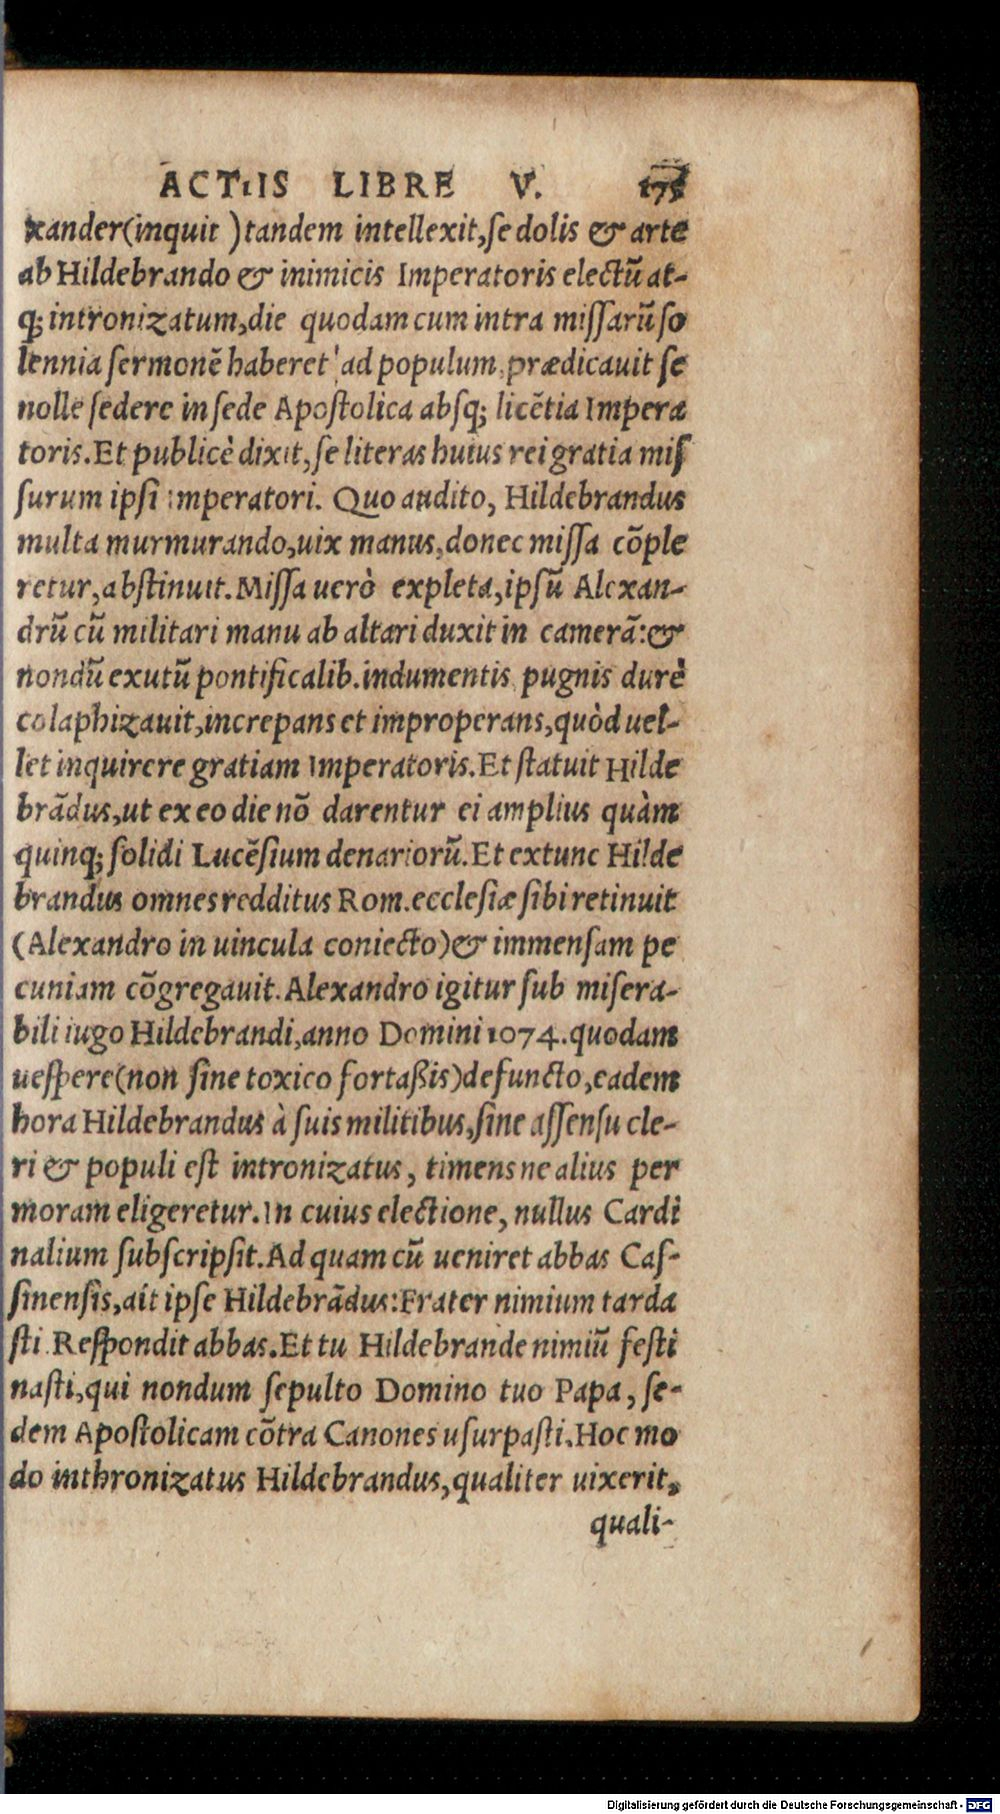 ACTIIS LIBRE V. 175
xander(inquit )tandem intellexit,ſe dolis & arte
ab Hildebrando & inimicis Imperatoris electũ at-
q; intronizatum,die quodam cum intra miſſarũ ſo
lennia ſermonẽ haberet ad populum, prædicauit ſe
nolle ſedere in ſede Apoſtolica abſq; licẽtia Impera
toris.Et publicè dixit,ſe literas huius rei gratia miſ
ſurum ipſi imperatori. Quo audito, Hildebrandus
multa murmurando,uix manus,donec miſſa cõple
retur,abſtinuit.Miſſa uerò expleta,ipſũ Alexan-
drũ cũ militari manu ab altari duxit in camerã:&
nondũ exutũ pontificalib.indumentis pugnis durè
colaphizauit,increpans et improperans,quòd uel-
let inquirere gratiam Imperatoris.Et ſtatuit Hilde
brãdus,ut ex eo die nõ darentur ei amplius quàm
quinq; ſolidi Lucẽſium denariorũ.Et extunc Hilde
brandus omnes redditus Rom.eccleſiæ ſibi retinuit
(Alexandro in uincula coniecto)& immenſam pe
cuniam cõgregauit.Alexandro igitur ſub miſera-
bili iugo Hildebrandi,anno Domini 1074.quodam
ueſpere(non ſine toxico fortaßis)defuncto,eadem
hora Hildebrandus à ſuis militibus,ſine aſſenſu cle-
ri & populi eſt intronizatus, timens ne alius per
moram eligeretur.In cuius electione, nullus Cardi
nalium ſubſcripſit.Ad quam cũ ueniret abbas Caſ-
ſinenſis,ait ipſe Hildebrãdus:Frater nimium tarda
ſti.Reſpondit abbas.Et tu Hildebrande nimiũ feſti
naſti,qui nondum ſepulto Domino tuo Papa, ſe-
dem Apoſtolicam cõtra Canones uſurpaſti.Hoc mo
do inthronizatus Hildebrandus,qualiter uixerit,
quali-
Digitalisierung gefördert durch die Deutsche Forschungsgemeinschaft - DFG